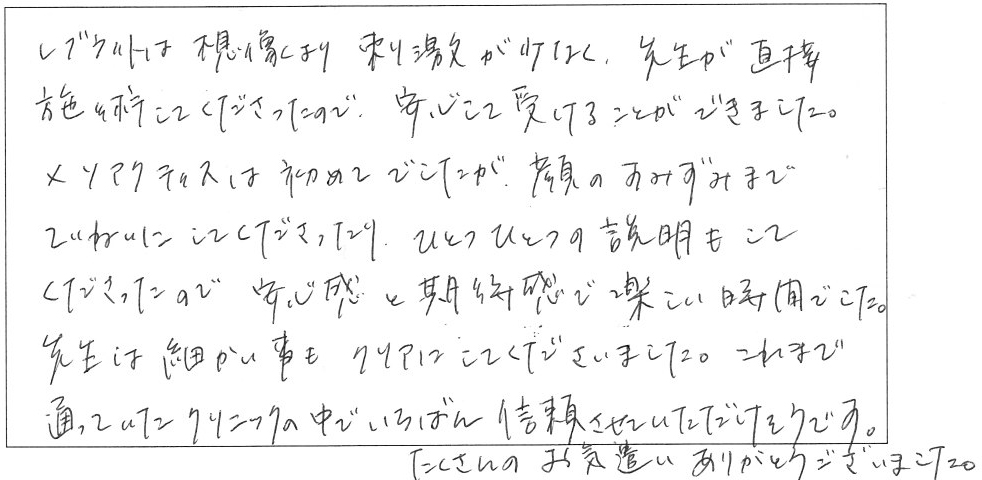 レブクリトは想像より刺激が少なく、先生が直接
施術してくださったので、安心して受けることができました。
メソアクティスは初めてでしたが、顔のすみずみまで
ていねいにしてくださったり、ひとつひとつの説明もして
くださったので安心感と期待感で楽しい時間でした。
先生は細かい事もクリアにしてくださいました。これまで
通っていたクリニックの中でいちばん信頼させていただけそうです。
たくさんのお気遣いありがとうございました。